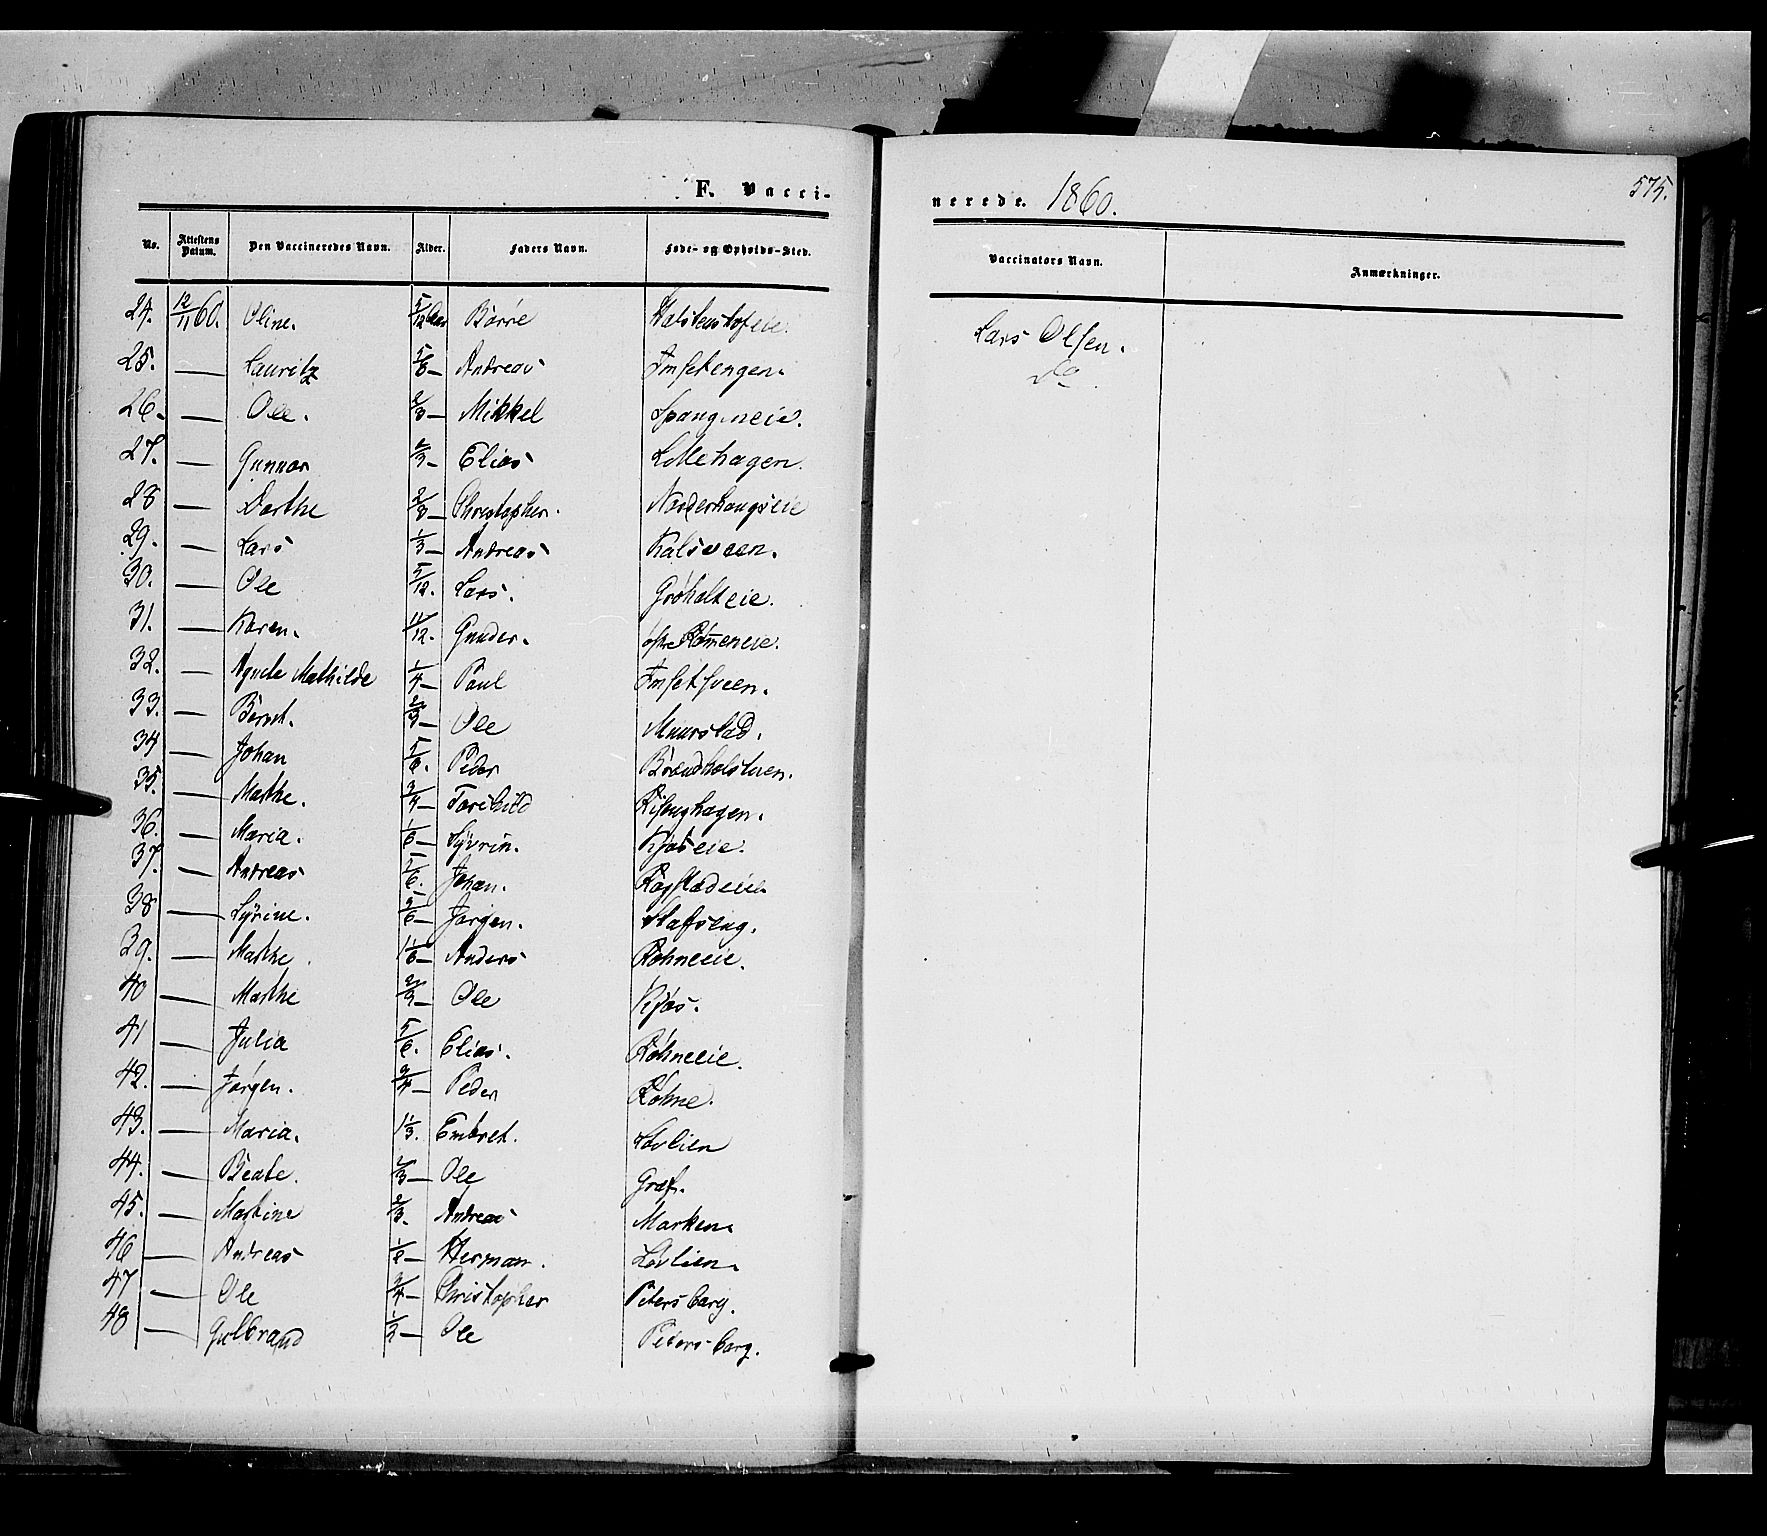 F. Vacci-
No. Attestens Datum. Den Vaccineredes Navn. Alder. Faders Navn. Føde- og Opholds-Sted.
24. 12/11 60. Oline. 5/12 Børre
25. — Lauritz 5/6 — Andreas Imsetengen.
26. — Ole. 2/3 — Mikkel Spangeneie.
27. — Gunnar 2/3 — Elias Lillehagen.
28 — Dorthe 2/3 — Christopher. Norderhaugseie
29. — Lars 1/3 — Andreas Kalsveen.
30. — Ole 5/12. Lars. Grøholteie.
31. — Karen. 11/12. Gunder.
32. — Agnete Mathilde 1/4 — Paul Imsetsveen.
33. — Bernt. 2/3 — Ole Muurstad.
34 — Johan 5/6. Peder
35. — Marthe. 3/4 — Torchild
36. — Maria. 1/6 — Syvrin. Kjøseie.
37. — Andreas 5/6. Johan. Rogstadeie.
38 — Syrine. 5/6 — Jørgen.
39. — Marthe. 1 1/6 — Anders Røhneeie.
40 — Marthe 2/3 — Ole Kjøs.
41 — Julia 5/6. Elias. Røhneeie.
42. — Jørgen. 3/4 — Peder Røhne.
43. — Maria. 1 1/3. Embret. Løvlien
44. — Beate. 2/3 — Ole Græf.
45. — Martine 2/3. Andreas Marken.
46 — Andreas 1/2 — Herman. Løvlien.
47 — Ole 3/4 — Christopher Petersborg.
48 — Gulbrand 1/2 — Ole Petersborg.
nerede. 1860. 575.
Vaccinators Navn. Anmærkninger.
Lars Olsen.
do